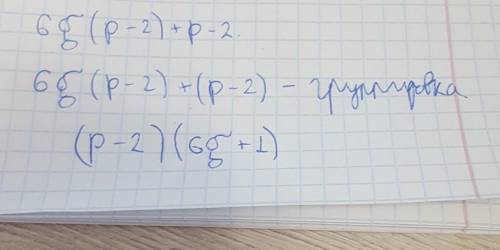 6g(p-2)+p-2.
6g(p-2)+(p-2) – группировка
(p-2)(6g+1)